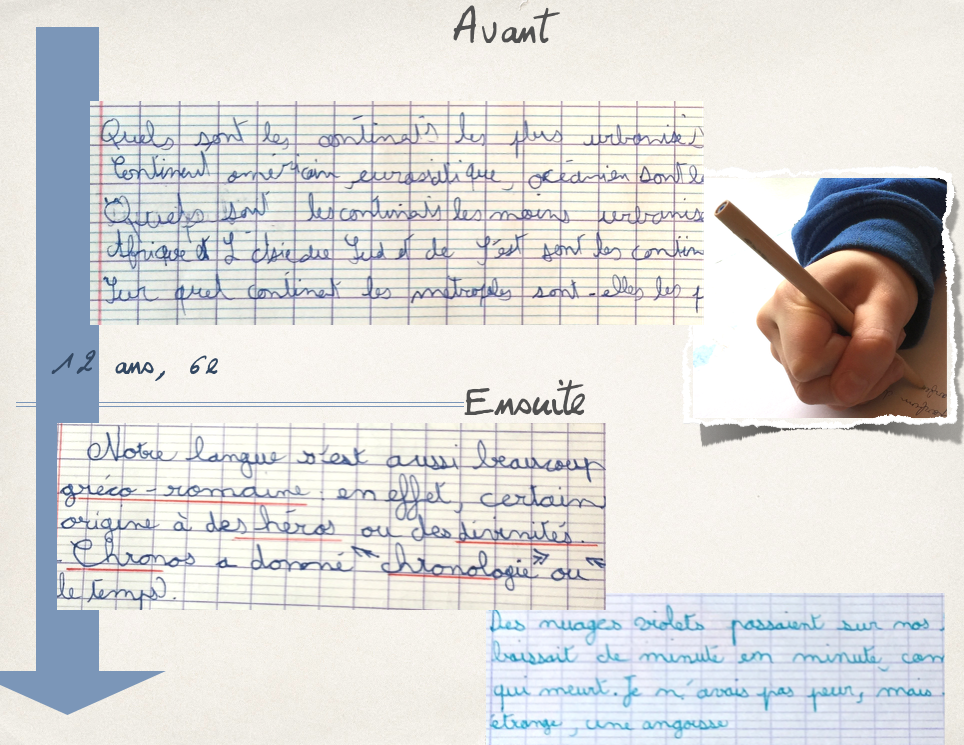 Avant
Quels sont les continats les plus urbanisés
Continent américain, eurasiatique, océanien sont le
Quels sont les continats les moins urbanis
Afrique et L'Asie du Sud et de l'est sont les contin
Sur quel continet les métroples sont-elles les p
12 ans, 6e
Ensuite
Notre langue s'est aussi beaucoup
gréco-romaine : en effet, certain
origine à des héros ou des divinités.
- Chronos a donné "chronologie" ou "
le temps.
Des nuages violets passaient sur nos
baissait de minute en minute, com
qui meurt. Je n'avais pas peur, mais
étrange, une angoisse